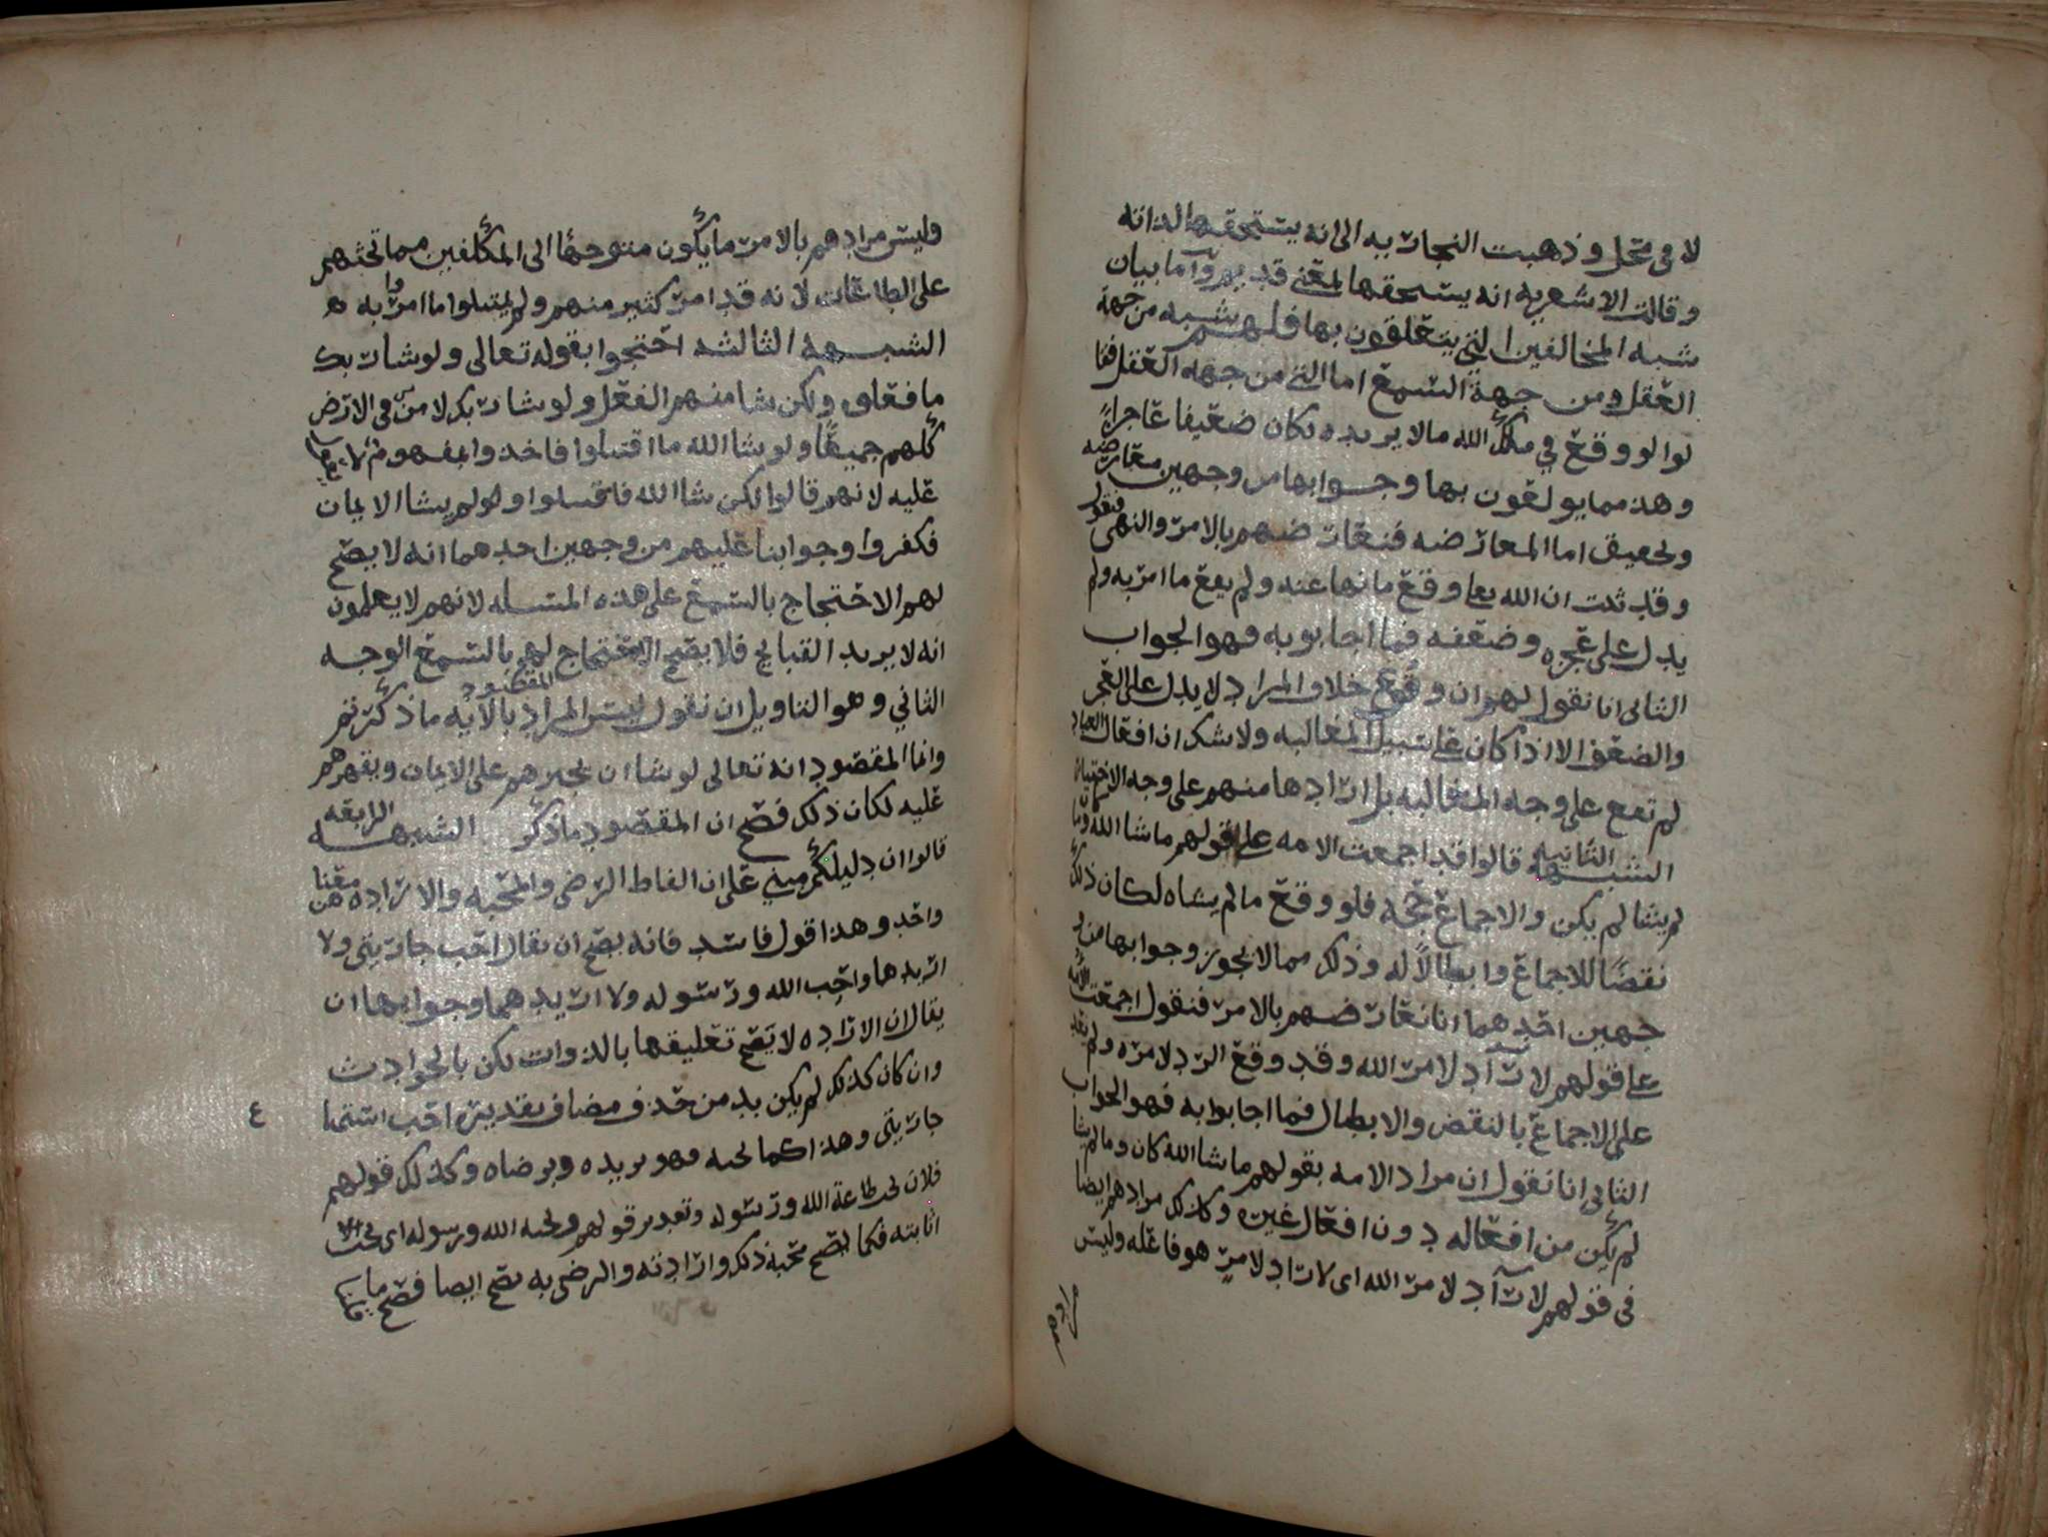 لا في محل وذهبت النجاريه الى انه يستحقها لذاته
وقالت الاشعريه انه يستحقها لمعنى قديم واما بيان
شبه المخالفين التي يتعلقون بها فلهم شبه من جهة
العقل ومن جهة السمع اما التي من جهه العقل فقا
لوا لو وقع في ملك الله ما لا يريده لكان ضعيفا عاجزا
وهذ مما يولعون بها وجوابها من وجهين معارضه
وتحقيق اما المعارضه فنعارضهم بالامر والنهي فنقول
وقد ثبت ان الله تعا وقع ما نها عنه ولم يقع ما امر به ولم
يدل على عجزه وضعفه فما اجابو به فهو الجواب
الثاني انا نقول لهم ان وقوع خلاف المراد لا يدل على العجز
والضعف الا اذا كان على سبيل المغالبه ولا شك ان افعال العباد
لم تقع على وجه المغالبه بل ارادها منهم على وجه الاختيار
الشبهه الثانيه قالوا قد اجمعت الامه على قولهم ما شا الله كان وما
لم يشا لم يكن والاجماع حجه فلو وقع ما لم يشاه لكان ذلك
نقضا للاجماع وابطالا له وذلك مما لا يجوز وجوابها من و
جهين احدهما انا نعارضهم بالامر فنقول اجمعت الامه
على قولهم لا رآد لامر الله وقد وقع الرد لامره ولم يعد
على الاجماع بالنقض والابطال فما اجابوا به فهو الجواب
الثاني انا نقول ان مراد الامه بقولهم ما شا الله كان وما لم يشا
لم يكن من افعاله دون افعال غيره وكذلك مرادهم ايضا
في قولهم لا رآد لامر الله اى لا راد لامر هو فاعله وليس
وليس مرادهم بالامر ما يكون متوجها الى المكلفين مما تحثهم
على الطاعات لانه قد امر كثير منهم ولم يمتثلوا ما امروا به
الشبهه الثالثه احتجوا بقوله تعالى ولو شا ربك
ما فعلوه ولكن شا منهم الفعل ولو شا ربك لامن من في الارض
كلهم جميعا ولو شا الله ما اقتتلوا فاخذوا بمفهوم
عليه لانهم قالوا لكن شا الله فاقتتلوا ولو لم يشا الايمان
فكفروا وجوابنا عليهم من وجهين احدهما انه لا يصح
لهم الاحتجاج بالسمع على هذه المسئله لانهم لا يعلمون
انه لا يريد القبائح فلا يصح الاحتجاج لهم بالسمع الوجه
الثاني وهو التاويل ان نقول ليس المراد المقصود بالآيه ما ذكرتم
وانما المقصود انه تعالى لو شا ان يجبرهم على الايمان ويقهرهم
عليه لكان ذلك فصح ان المقصود ما ذكر الشبهه الرابعه
قالوا ان دليلكم مبني على ان الفاظ الرضى والمحبه والاراده هن معنا
واحد وهذا قول فاسد فانه يصح ان يقال احب جاريتي ولا
اريدها واحب الله ورسوله ولا اريدهما وجوابها ان
يقال ان الاراده لا يصح تعليقها بالذوات لكن بالحوادث
وان كان كذلك لم يكن بد من حذف مضاف تقديره احب استمتا
ع
جاريتي وهذا كما نحبه فهو يريده ويرضاه وكذلك قولهم
فلان يحب طاعة الله ورسوله وتقدير قولهم ونحبه الله ورسوله اى يحب
اثابته فكما يصح محبة ذلك وارادته والرضى به يصح ايضا فصح ما